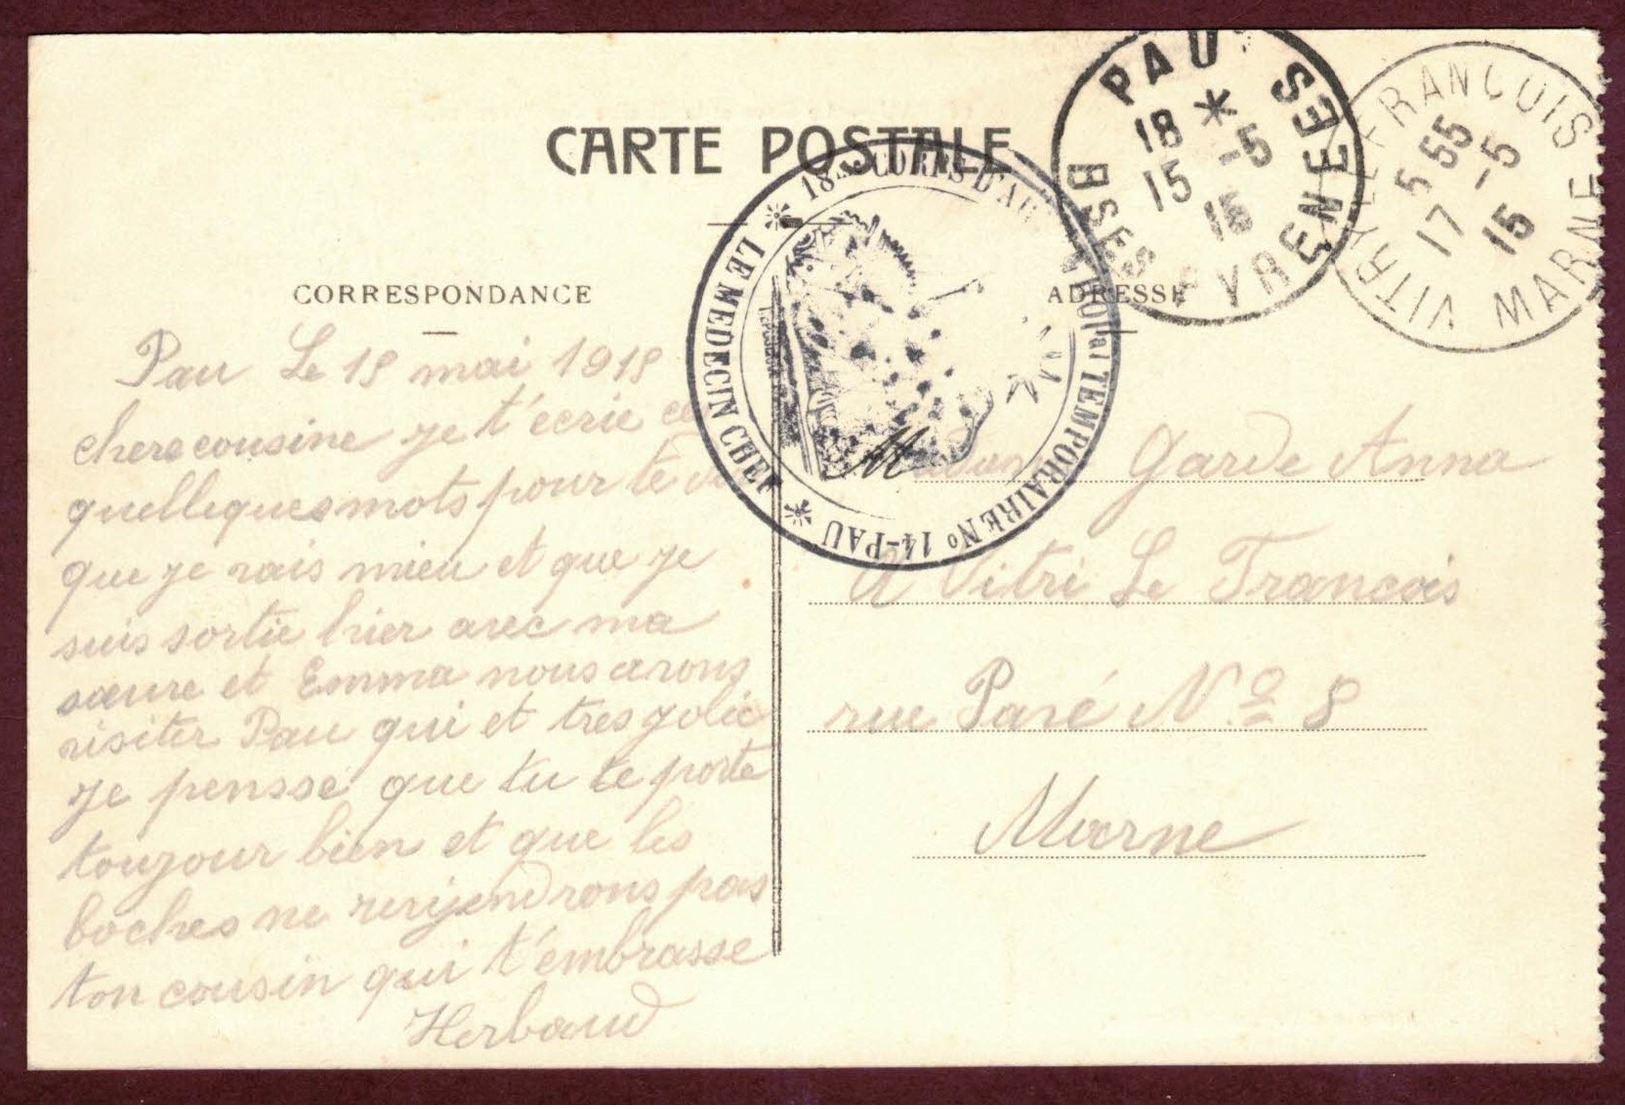 CARTE POSTALE
CORRESPONDANCE
ADRESSE
PAU
18 *
15 -5
15
BSES PYRENEES
VITRY LE FRANCOIS
5 55
17 -5
15
MARNE
18me CORPS D'AR
HOPal TEMPORAIRE No 14-PAU
* LE MEDECIN CHEF *
Pau Le 15 mai 1915
chere cousine je t'écrie ces
quelleques mots pour te
que je vais mieu et que je
suis sortie hier avec ma
sœure et Emma nous avons
visiter Pau qui et tres jolie
je pensse que tu te porte
toujour bien et que les
boches ne revijendrons pas
ton cousin qui t'embrasse
Herbaud
Garde Anna
A Vitri Le Francois
rue Pavé No 8
Marne